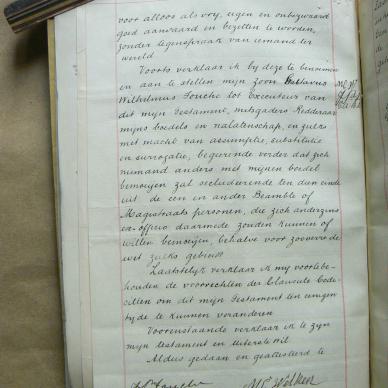 voor altoos als vry, eigen en onbezwaard
goed aanvaard en bezeten te worden,
zonder tegenspraak van iemand ter
wereld
Voorts verklaar ik by deze te benoemen
en aan te stellen mijn zoon Gustavus
Wilhelmus Fouche tot Executeur van
dit mijn testament, mitsgaders Redderaar
mijns boedels en nalatenschap, en zulks
met macht van assumptie, substitutie
en surrogatie, begeerende verder dat zich
niemand anders met mijnen boedel
bemoeijen zal secludeerende ten dien einde
uit de een en ander Beambte of
Magistraats personen, die zich anderzins
ex officio daarmede zouden kunnen of
willen bemoeijen, behalve voor zooverre de
wet zulks gebiedt
Laatstelijk verklaar ik my voortebe-
houden de voorrechten der Clausule Codi-
cillen om dit mijn testament ten eenigen
tyde te kunnen veranderen
Voorenstaande verklaar ik te zyn
mijn testament en uiterste wil
Aldus gedaan en gepasseerd te